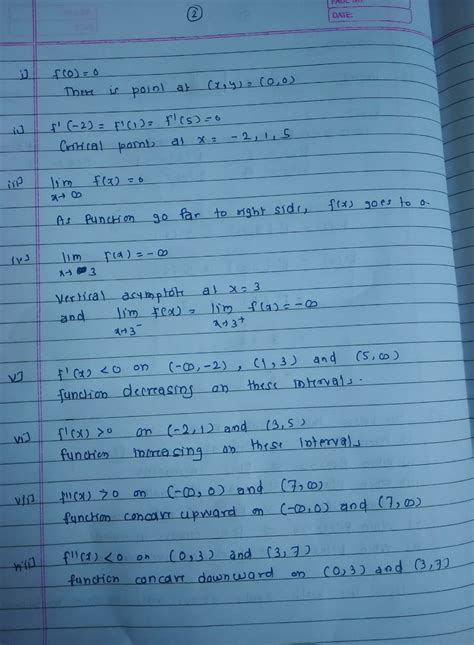 PAGE NO.
DATE:
2
i] f(0) = 0
There is point at (x,y) = (0,0)
ii] f'(-2) = f'(1) = f'(5) = 0
Critical points at x = -2, 1, 5
iii] lim x→∞ f(x) = 0
As function go far to right side, f(x) goes to 0.
iv] lim x→3 f(x) = -∞
Vertical asymptote at x = 3
and lim x→3⁻ f(x) = lim x→3⁺ f(x) = -∞
v] f'(x) < 0 on (-∞,-2), (1,3) and (5,∞)
function decreasing on these intervals.
vi] f'(x) > 0 on (-2,1) and (3,5)
function increasing on these intervals
vii] f''(x) > 0 on (-∞,0) and (7,∞)
function concave upward on (-∞,0) and (7,∞)
viii] f''(x) < 0 on (0,3) and (3,7)
function concave downward on (0,3) and (3,7)